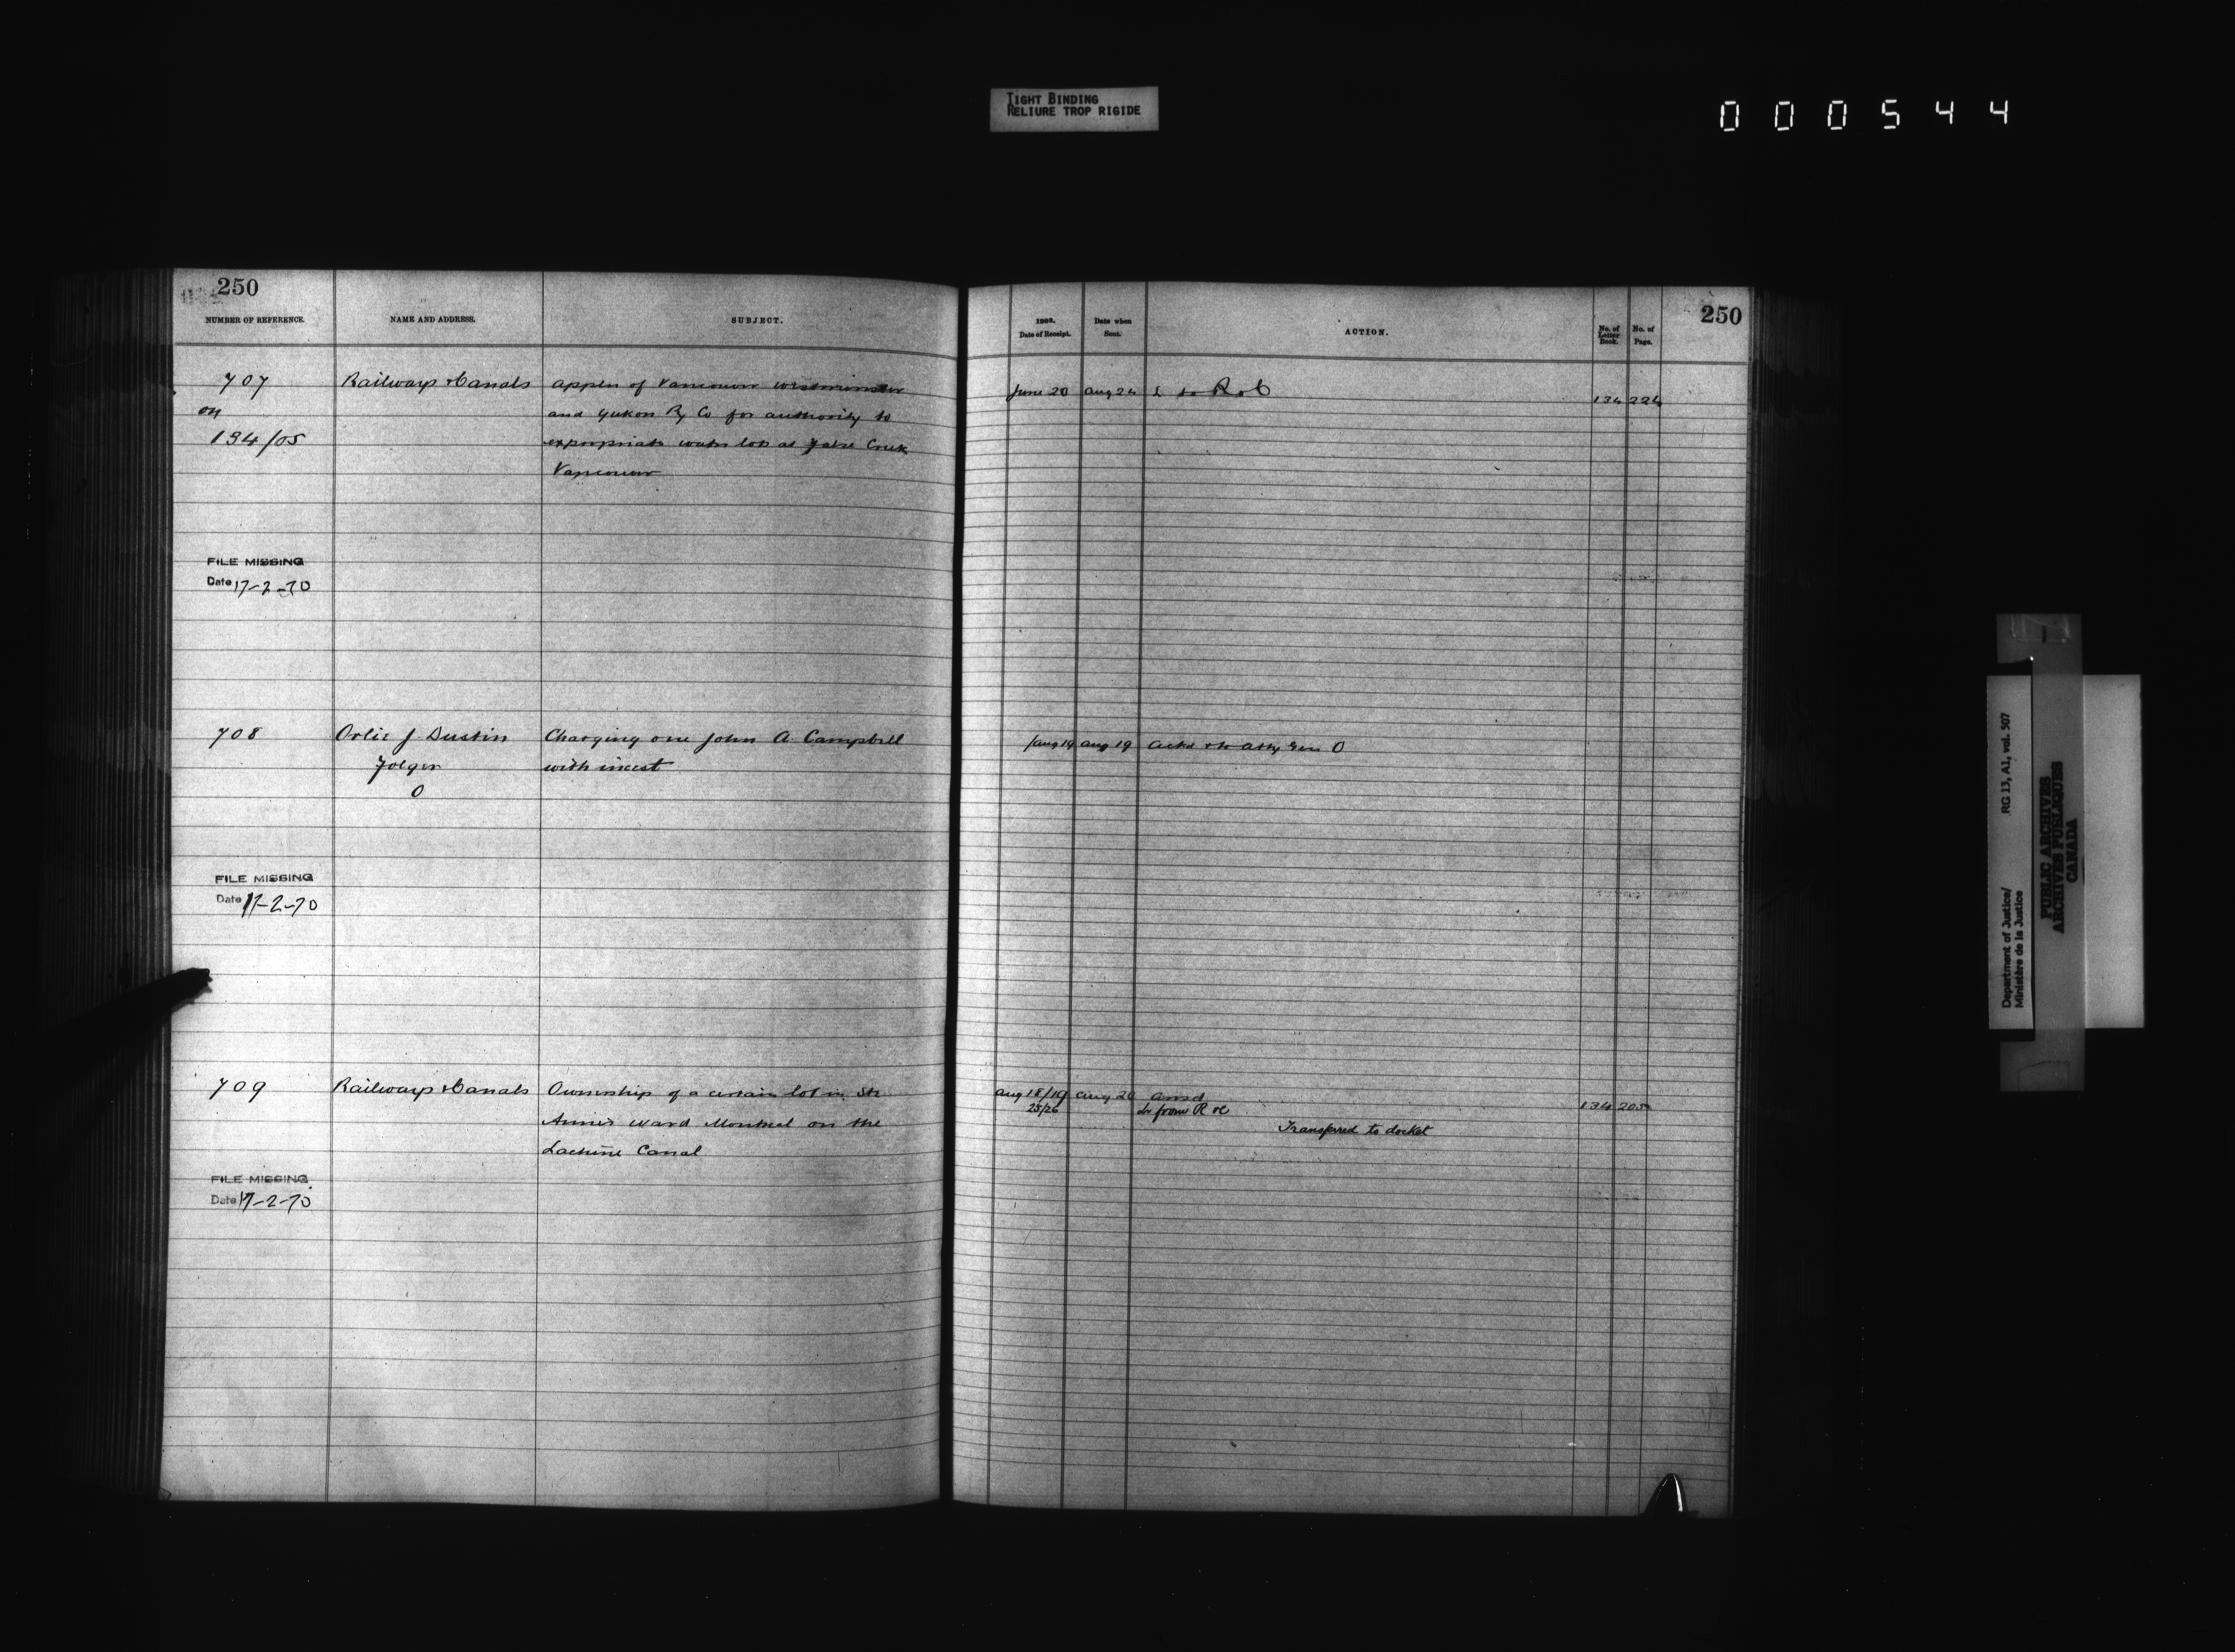 TIGHT BINDING
RELIURE TROP RIGIDE
000544
250
NUMBER OF REFERENCE.
NAME AND ADDRESS.
SUBJECT.
1905.
Date of Receipt.
Date when
Sent.
ACTION.
No. of
Letter
Book.
No. of
Page.
250
707
on
134/05
Railways & Canals
Appln of Vancouver Westminster
and Yukon Ry Co for authority to
expropriate water lots at False Creek
Vancouver
June 20
Aug 24
L to R & C
134
224
FILE MISSING
Date 17-2-70
708
Orlie J Dustin
Folger
O
Charging one John A Campbell
with incest
Aug 19
Aug 19
Ackd & to Atty Gen O
FILE MISSING
Date 17-2-70
709
Railways & Canals
Ownership of a certain lot in St
Anne's Ward Montreal on the
Lachine Canal
Aug 18/19
25/26
Aug 20
Ansd
from R &c
Transferred to docket
134
205
FILE MISSING
Date 17-2-70
Department of Justice/
Ministère de la Justice
RG 13, A1, vol. 507
PUBLIC ARCHIVES
ARCHIVES PUBLIQUES
CANADA